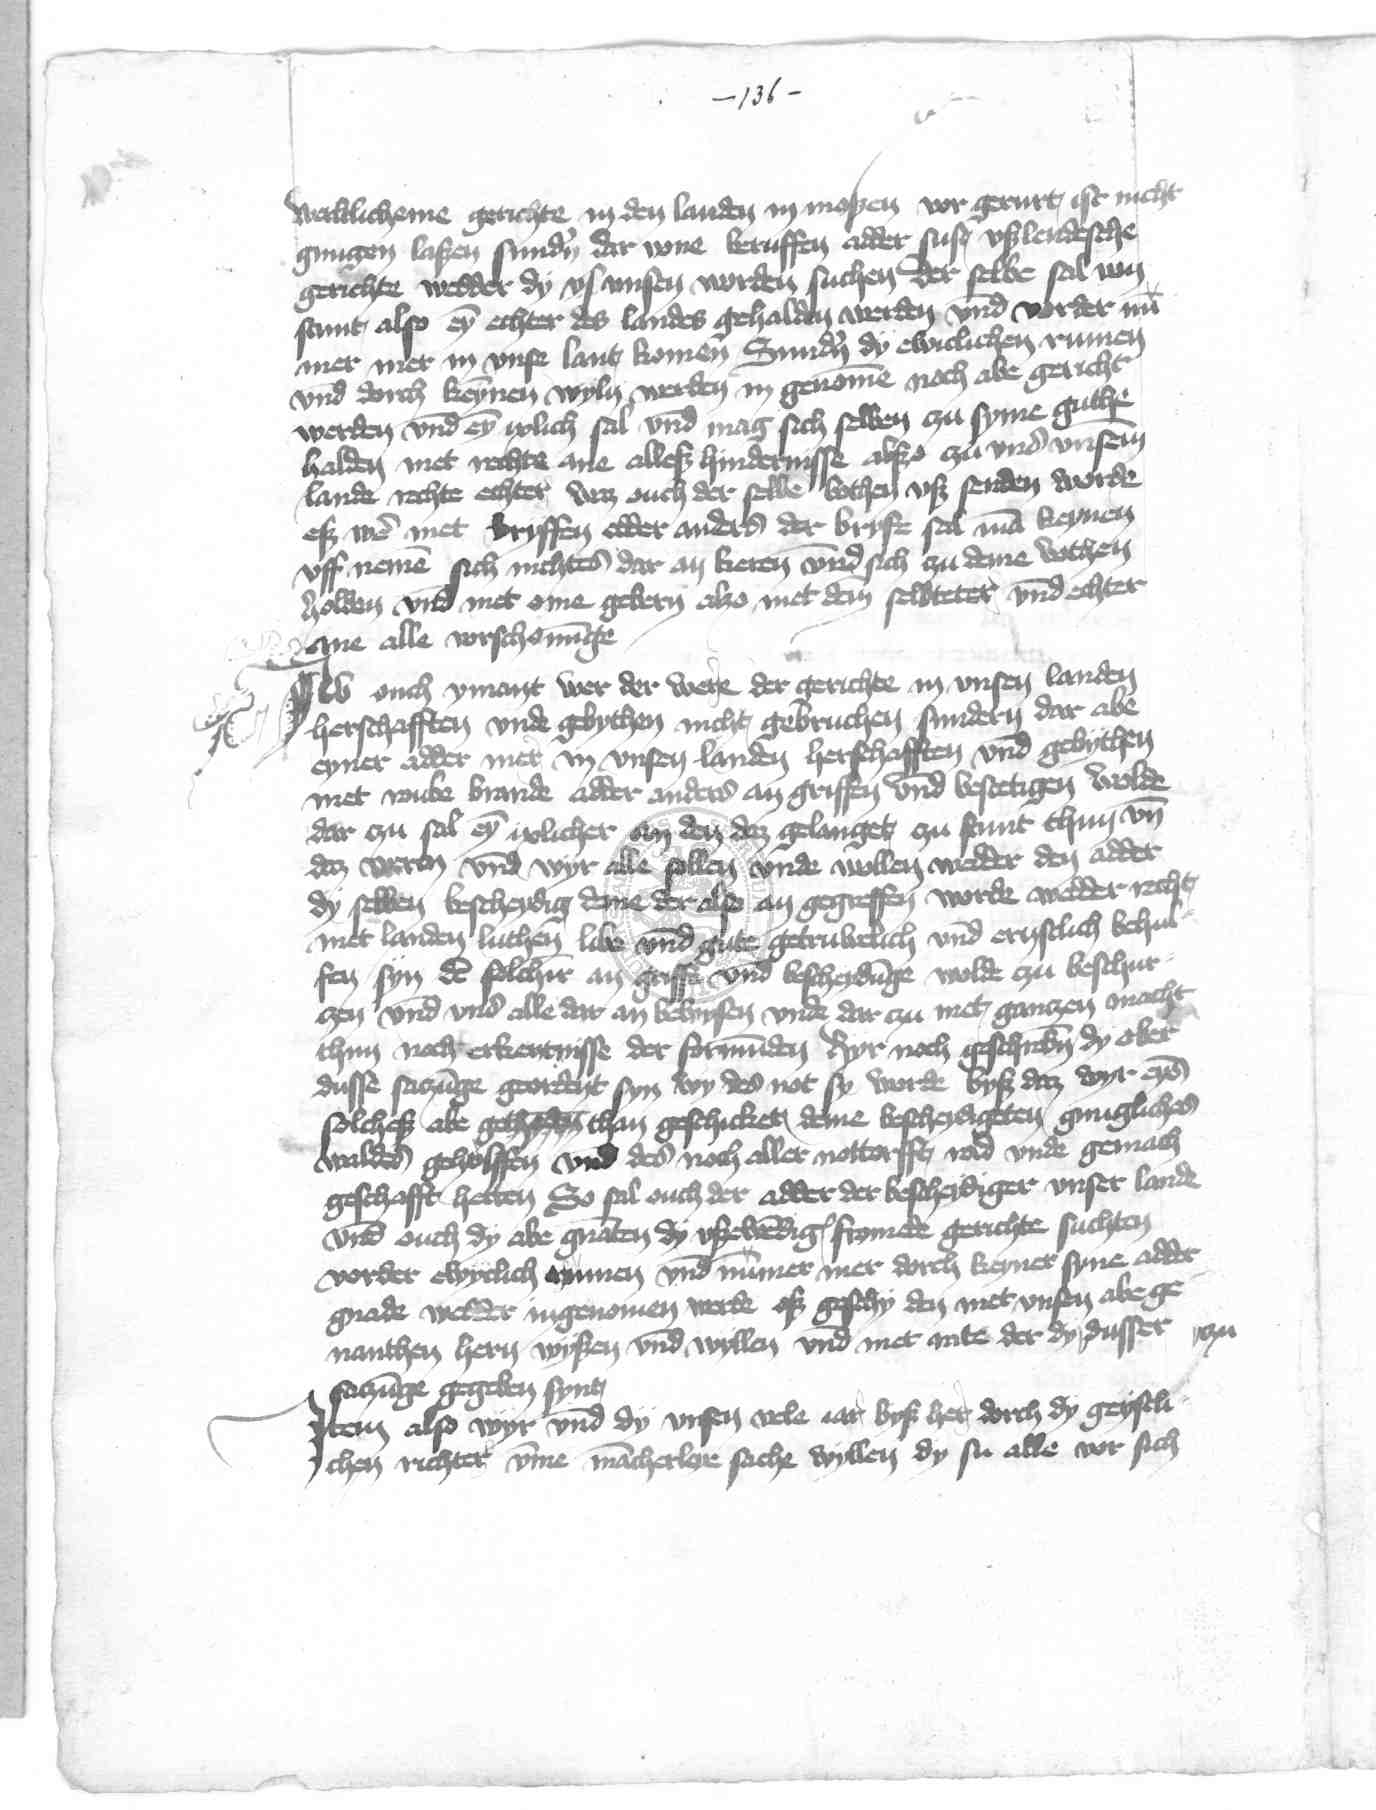 -136-
werltlicheme gerichte in den landen in moßen vor gerurt ist nicht
gnugen laßen sundern dar vone beruffen adder sust ußlendesche
gerichte wedder dy uf unsen worden suchen Der selbe sal von
stunt also eyn echter des landes gehalden werden und vorder num
mer mer in unse lant komen Sundern dy ewiclichen rumen
und dorch keynen wyln werden in genomē noch abe gericht
werden und eyn iclich sal und mag sich selben czu syme guthe
halden met rechte ane alleß hindernisse alßo czu uns unsem
lande rechte echter waz ouch der selbe bothen uß senden worde
eß wē met bryffen edder anders der bryfe sal mā keynen
uff nemē sich nichtes dar an keren und sich zu deme bothen
holden und met ome gebern alzo met dem selbteter und echter
ane alle vorschonūge
Ab ouch ymant wer der were der gerichte in unsen landen
herschafften unde gebythen nicht gebruchen sundern dar abe
eyner adder mer in unsen landen herschafften und gebythen
met roube brande adder anders an griffen und bescetigen wolde
dar czu sal eyn iclicher an den daz gelanget zu stunt thun un
daz weren und wyr alle sollen unde wollen wedder den adder
dy selben bescheydig deme der also an gegreffen worde wedder recht
met landen luthen libe und gute getruwelich und ernstlich behul
fen syn dē solchin an griffe und bescheydūge wolde czu beschur
czen und uns alle dar an bewysen unde dar czu met ganczen macht
thun noch erkentnisse der formunden Hyr noch geschrebn dy ober
dusse saczūge geordent syn wy des not sy worde byß daz wyr eyns
solcheß abe than geschicket deme bescheydigeten gnuglichers
waldes geholffen und des noch aller nottorfft rad unde gemach
geschafft hetten So sal ouch der adder der bescheydiger unser lande
und ouch dy abe gnaten dy ußewēdig fromede gerichte suchten
vorder ewyclich rumen und nūmer mer dorch keyner syne adder
gnade wedder ingenomen werde eß geschy den met unsen abe ge
nanthen hern wyßen und wyllen und met rate der dy dusser czu
saczūge gegeben synt
Item also wyr und dy unsen vele iar byß her dorch dy geystli
chen richter ūme mācherleye sache wyllen dy su alle vor sich